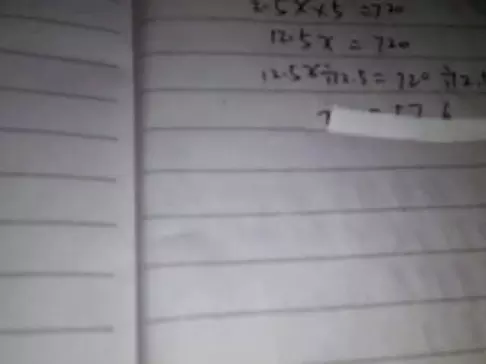 2.5x×5=720
12.5x = 720
12.5x÷12.5=720÷12.5
=57.6